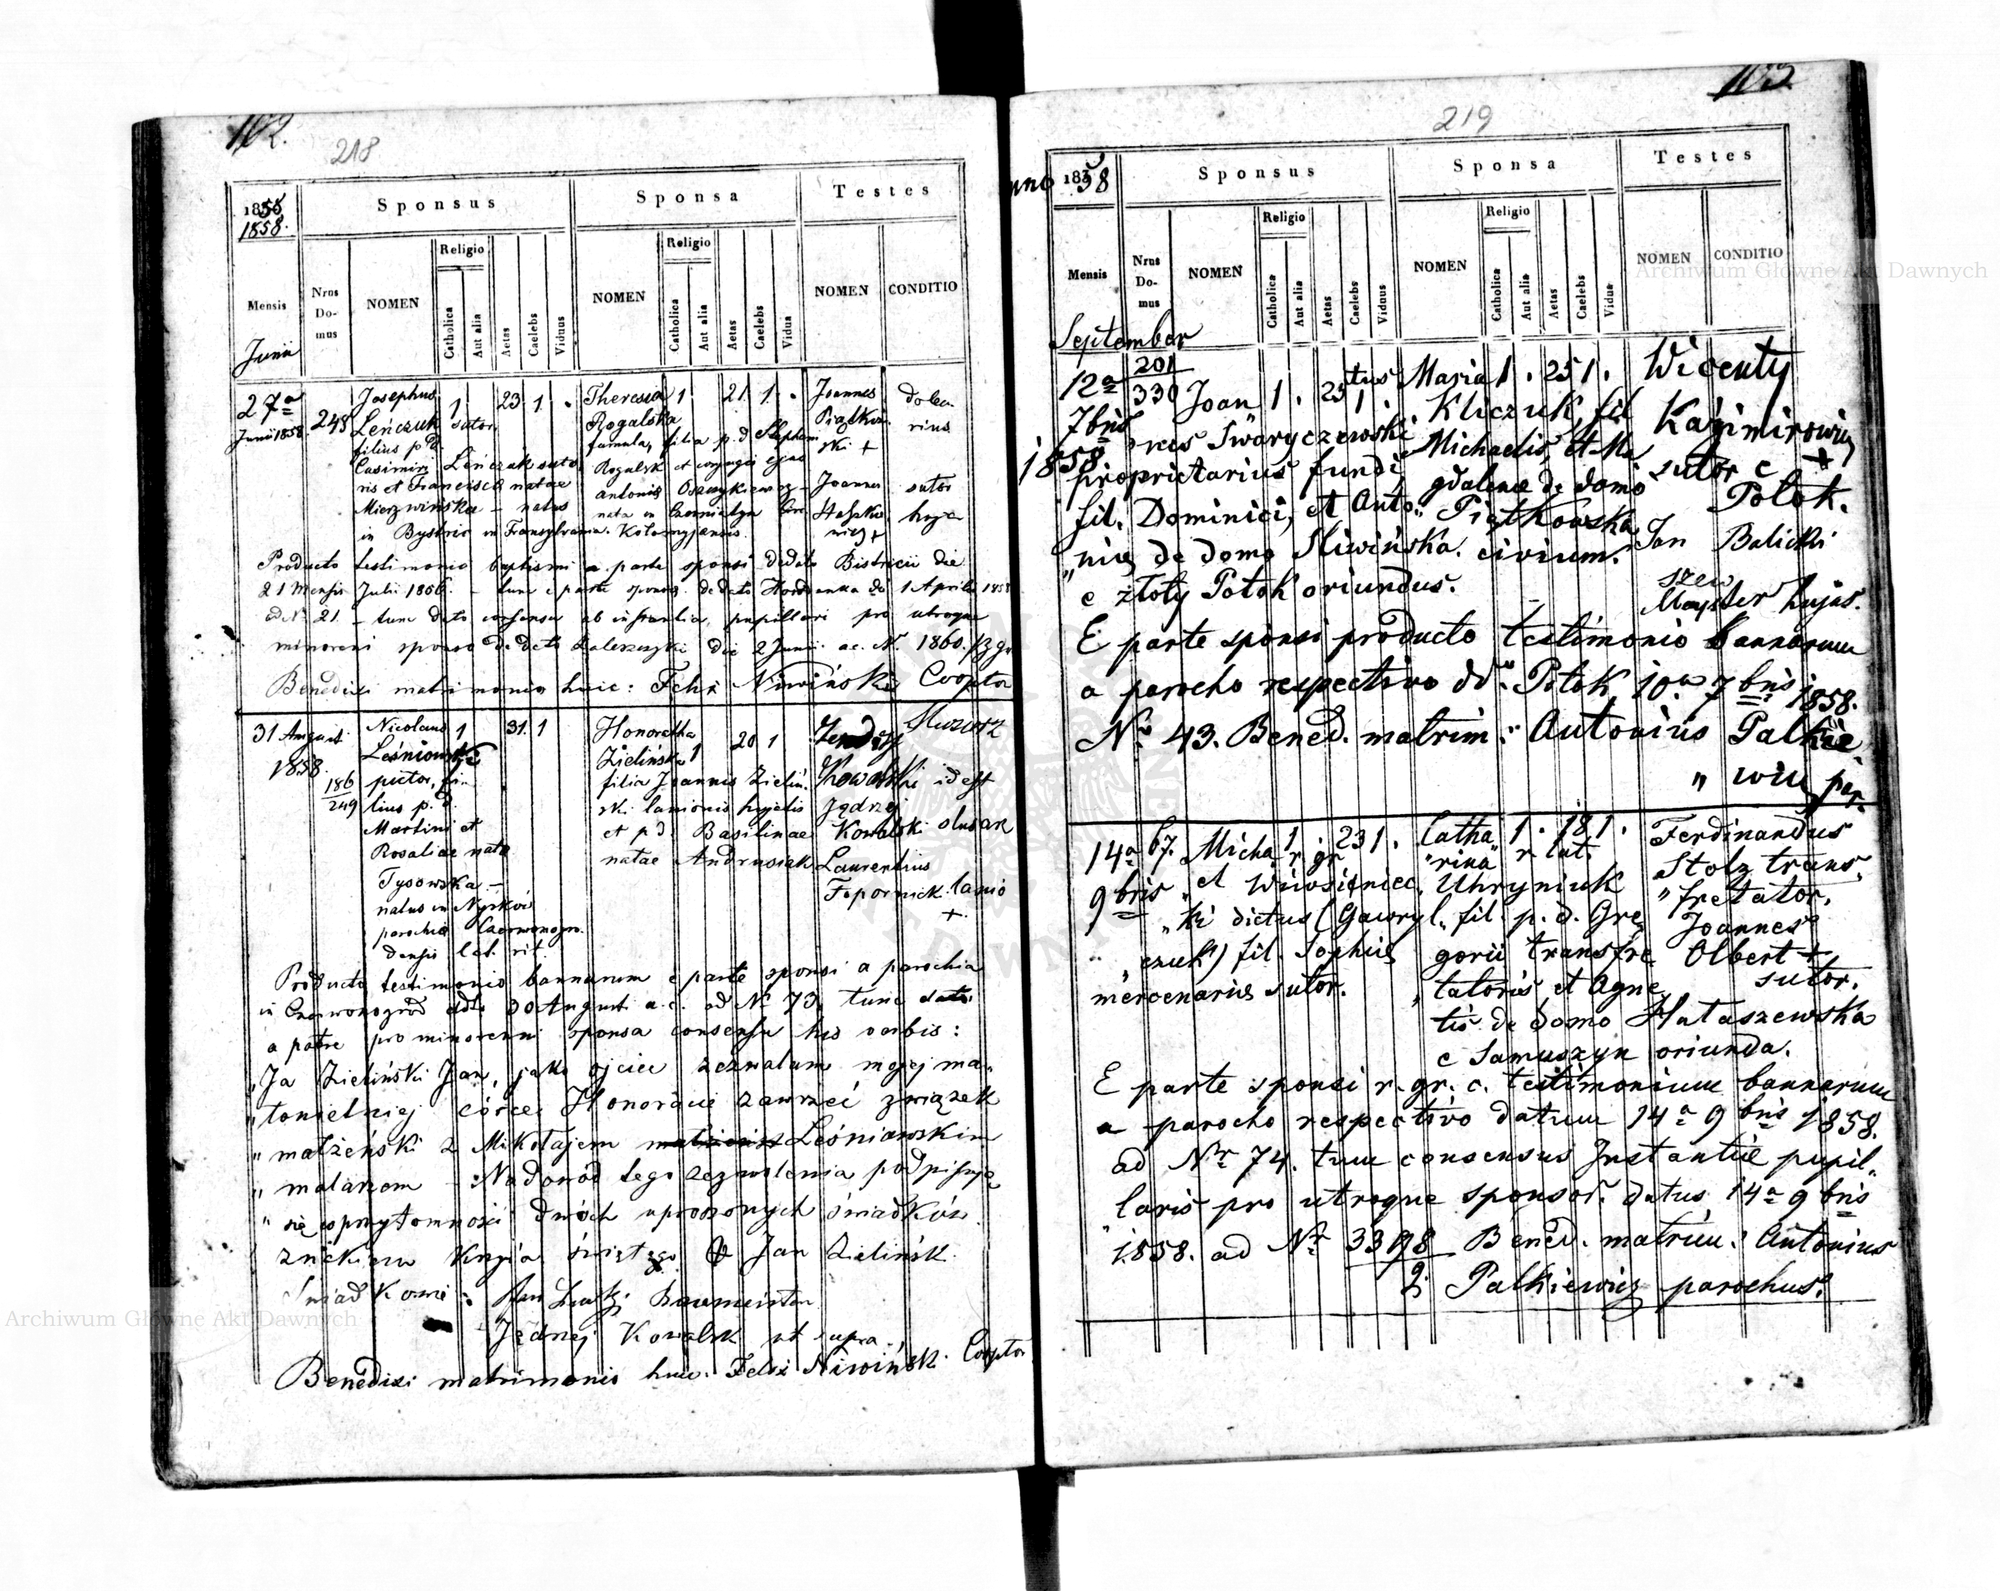 102.
218
1855
1858.
Sponsus
Sponsa
Testes
Mensis
Nros Domus
NOMEN
Religio
Catholica
Aut alia
Aetas
Caelebs
Viduus
NOMEN
Religio
Catholica
Aut alia
Aetas
Caelebs
Vidua
NOMEN
CONDITIO
Junii
27a
Junii 1858.
248
Josephus
Leńczuk sutor
filius p. d.
Casimiri Leńczuk suto
ris et Francisca natae
Mierzwińska - natus
in Bystric in Transylvania.
1
23
1
.
Theresia
Rogalska
famula, filia p. d. Stephani
Rogalsk et conjugis ejus
antonia
nata in
Kołomyjensis.
1
21
1
.
Joannes
Piątkow
ski +
Joannes
dolea
rius
sutor
Producto testimonio baptismi a parte sponsi de dato Bistricii die
21 Mensis Julii 1856. - tum e parte sponsae de dato Horodenka de 1 Aprilis 1858
ad N. 21. - tum dato consensu ab instantia pupillari pro utroque
minoreni sponso de dato Zaleszczyki die 2 Junii a. c. N. 1860.
Benedixi matrimonio huic: Felix Niwiński Cooptor
31 August
1858.
186
249
Nicolaus
Leśniowski
pictor, fi-
lius p. d.
Martini et
Rosaliae nata
Tysowska -
natus in Nyrków
parochia Czerwonogro-
densis lat. rit.
1
31.
1
Honoratha
Zielińska
filia Joannis Zieliń.
ski lanionis hujatis
et p. d. Basilinae
natae Andrusiak
1
20
1
Kowalski id est
Jędrzej
Kowalski slusarz
Laurentius
Fopornick. lanio
+.
Producto testimonio bannarum e parte sponsi a parochia
in Czerwonogrod ddto 30 August. a. c. ad N. 73, tum dato
a patre pro minorenni sponsa consensu his verbis:
"Ja Zieliński Jan, jako ojciec zezwalam mojej ma-
"łoletniej córce Honoracie zawrzeć związek
"małżeński z Mikołajem Leśniawskim
"malarzem - Na dowód tego zezwolenia podpisuję
"się w przytomności dwóch uproszonych świadków
znakiem Krzyża świętego + Jan Zielińsk.
Świadkowie: Baumeister
Jędrzej Kowalsk ut supra
Benedixi matrimonio huic: Felix Niwińsk. Cooptor
103.
219
Anno 1858
Sponsus
Sponsa
Testes
Mensis
Nrus Domus
NOMEN
Religio
Catholica
Aut alia
Aetas
Caelebs
Viduus
NOMEN
Religio
Catholica
Aut alia
Aetas
Caelebs
Vidua
NOMEN
CONDITIO
September
12a
7bris
1858
201
330
Joan
"nes Swaryczewski
proprietarius fundi,
fil. Dominici, et Anto-
"niae de domo Sliwińska.
e złoty Potok oriundus.
1
.
25
1
.
Maria
Kliczuk, fil
Michaelis, et Ma
gdalenae de domo
Piątkowska
civium.
1
.
25
1
.
Wicenty
Kaźimirowicz
sutor e +
Potok.
Jan Balicki
szew
Mayster hujas.
E parte sponsi producto testimonio bannarum
a parocho respectivo dd. Potok 10a 7bris 1858.
Nr. 43. Bened. matrim: Antonius Palkie
"wicz par.
14a
9bris
67.
Micha
"el Wiwsieniec
"ki dictus (Gawryl
"czuk) fil. Sophiae
mercenariae sutor.
1
r. gr
.
23
1.
Catha
"rina
Uhryniuk
fil. p. d. Gre
gorii transfre
"tatoris et Agne
tis de domo Hutaszewska
e Samuszyn oriunda.
1
r lat.
.
18
1
.
Ferdinandus
Stolz trans.
"fretator.
Joannes
Olbert +
sutor.
E parte sponsi r. gr. c. testimonium bannarum
a parocho respectivo datum 14a 9bris 1858.
ad Nr. 74. tum consensus Instantiae pupil.
laris pro utroque sponsor. datus 14a 9bris
1858. ad Nr. 3398 Bened. matrim: Antonius
Palkiewicz parochus.
Archiwum Główne Akt Dawnych
Archiwum Główne Akt Dawnych